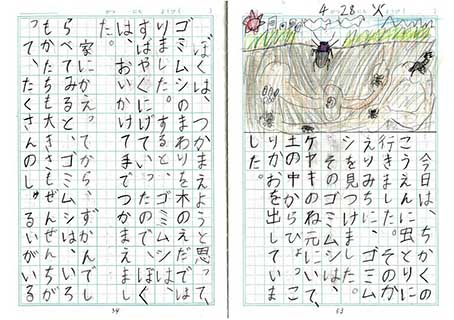 4 28 火
今日は、ちかくの
こうえんに虫とりに
行きました。そのか
えりみちに、ゴミム
シを見つけました。
そのゴミムシは、
ケヤキのね元にいて、
土の中からひょっこ
りかおを出していま
した。
53
ぼくは、つかまえようと思って、
ゴミムシのまわりを木のえだでほ
りました。すると、ゴミムシは、
すばやくにげていったので、ぼく
は、おいかけて手でつかまえました。
家にかえってから、ずかんでし
らべてみると、ゴミムシは、いろ
もかたちも大きさもぜんぜんちが
って、たくさんのしゅるいがいる
54